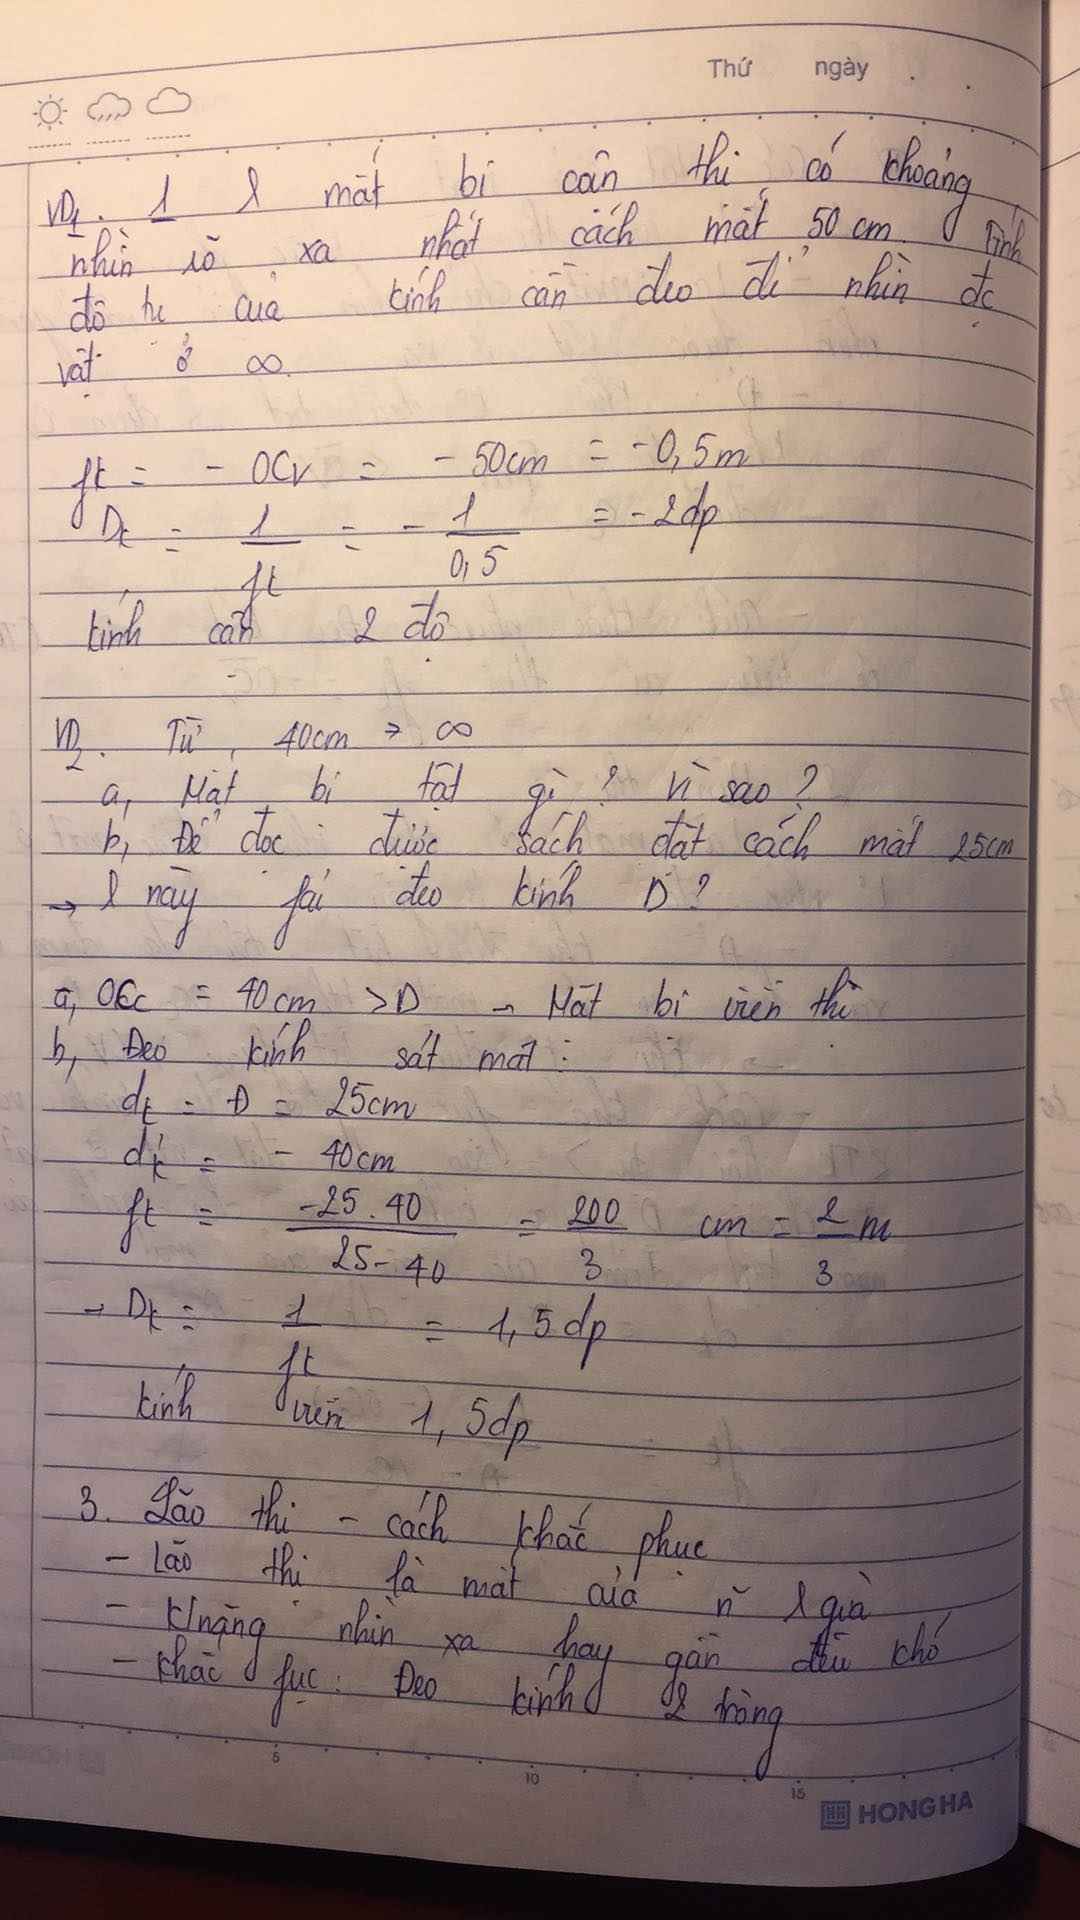 Thứ ngày
VD1. 1 l mắt bị cận thị có khoảng
nhìn rõ xa nhất cách mắt 50 cm. Tính
độ tụ của kính cần đeo để nhìn đc
vật ở ∞.
fk = - OCv = - 50cm = -0,5m
Dk = 1/fk = - 1/0,5 = -2dp
kính cận 2 độ
VD2. Từ 40cm → ∞
a, Mắt bị tật gì? Vì sao?
b, Để đọc được sách đặt cách mắt 25cm
→ l này fải đeo kính D?
a, OCc = 40cm > Đ → Mắt bị viễn thị
b, Đeo kính sát mắt:
dk = Đ = 25cm
d'k = - 40cm
fk = -25.40/25-40 = 200/3 cm = 2/3 m
→ Dk = 1/fk = 1,5dp
kính viễn 1,5dp
3. Lão thị - cách khắc phục
- Lão thị là mắt của n~ l già
- K/năng nhìn xa hay gần đều khó
- khắc fục: Đeo kính 2 tròng
5 10 15
HONG HA